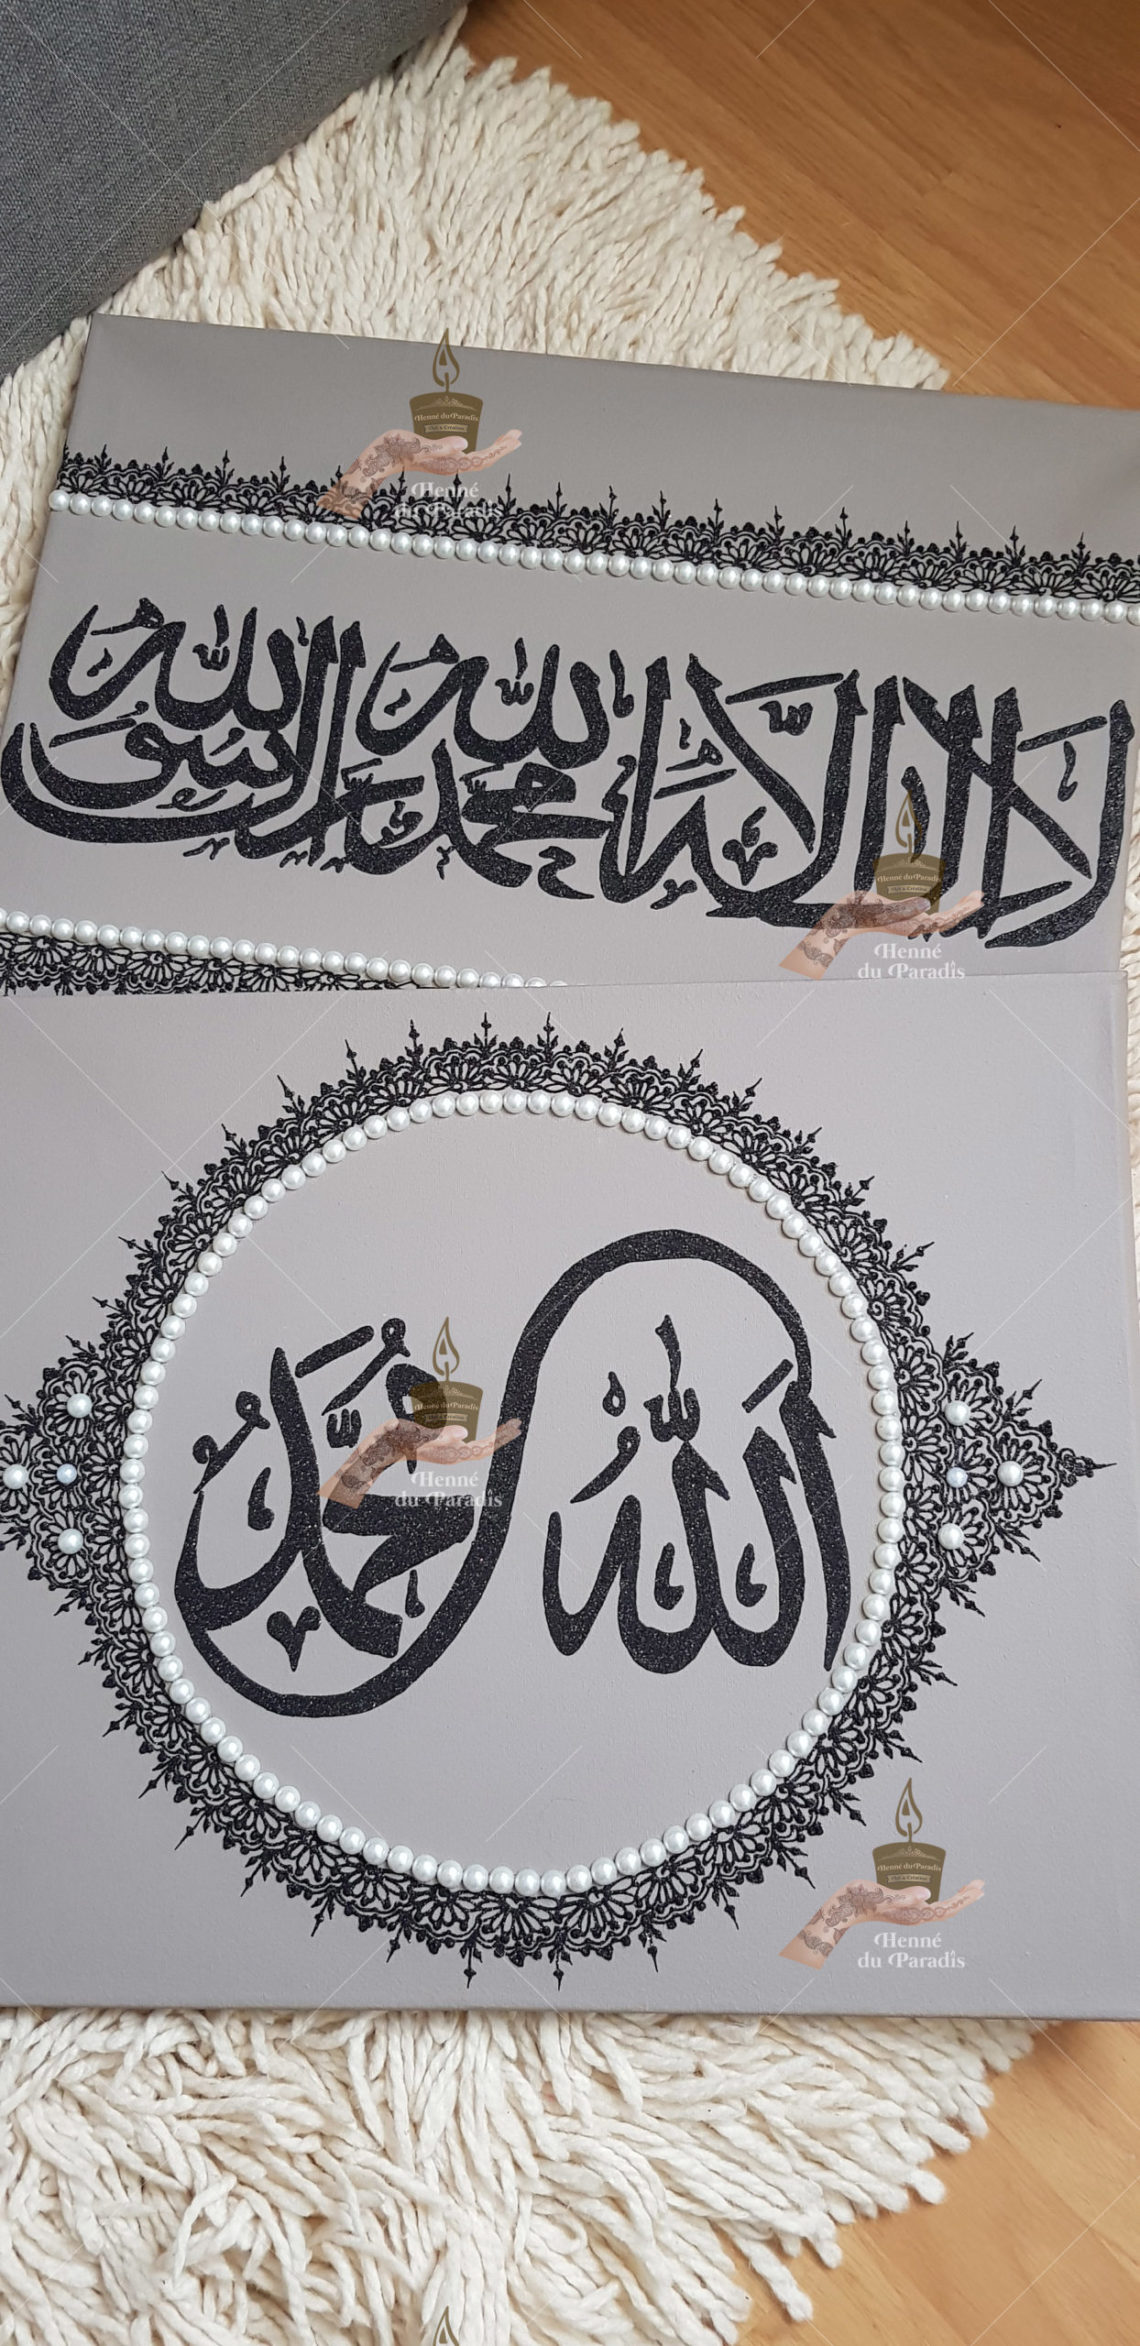 Henné du Paradis
Art & Création
Henné
du Paradis
لا إله إلا الله محمد رسول الله
Henné du Paradis
Henné
du Paradis
الله محمد
Henné du Paradis
Henné
du Paradis
Henné du Paradis
Art & Création
Henné
du Paradis